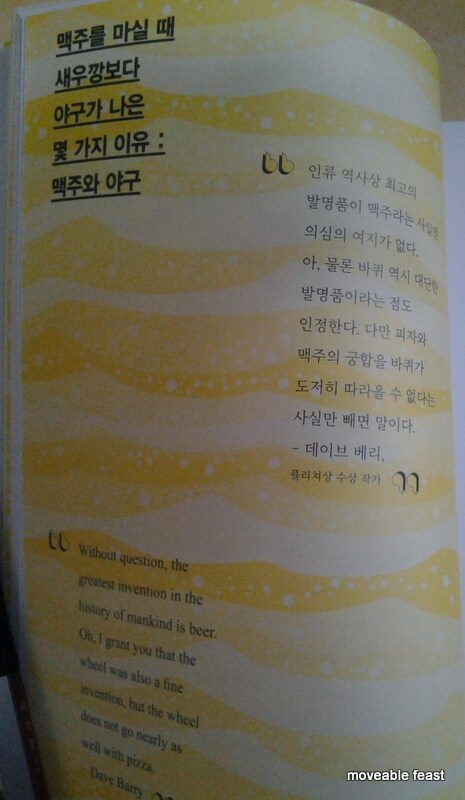 맥주를 마실 때
새우깡보다
야구가 나은
몇 가지 이유 :
맥주와 야구
인류 역사상 최고의
발명품이 맥주라는 사실엔
의심의 여지가 없다.
아, 물론 바퀴 역시 대단한
발명품이라는 점도
인정한다. 다만 피자와
맥주의 궁합을 바퀴가
도저히 따라올 수 없다는
사실만 빼면 말이다.
- 데이브 베리,
퓰리처상 수상 작가
Without question, the
greatest invention in the
history of mankind is beer.
Oh, I grant you that the
wheel was also a fine
invention, but the wheel
does not go nearly as
well with pizza.
- Dave Barry
moveable feast